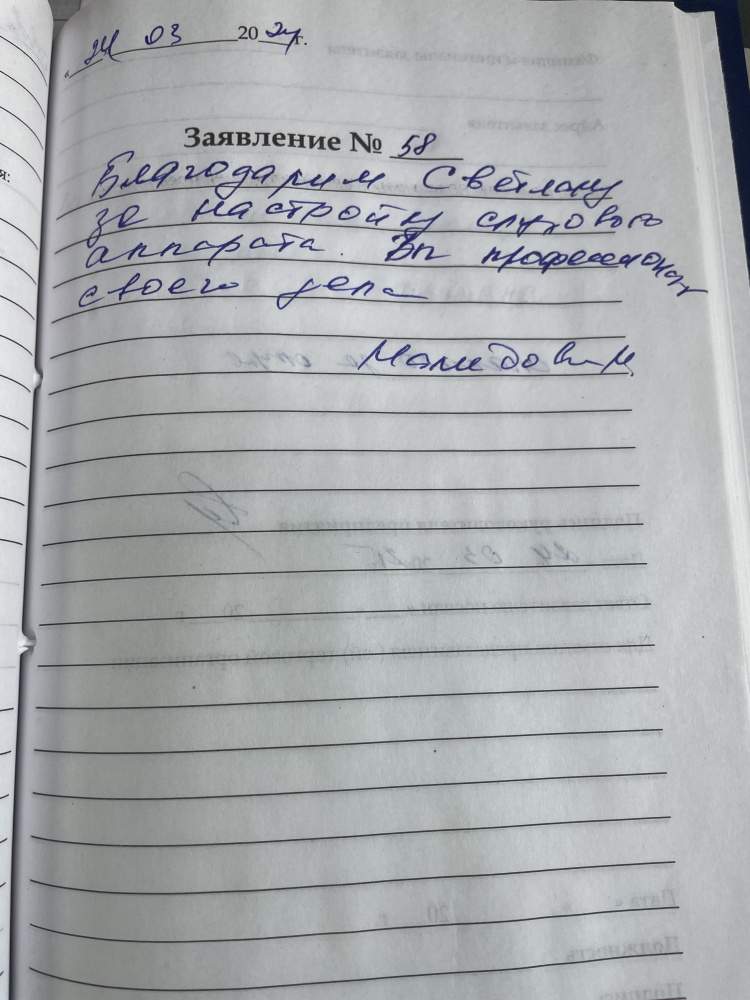 24 03 2024 г.
Заявление № 58
Благодарим Светлану
за настройку слухового
аппарата. Вы профессионал
своего дела
я: